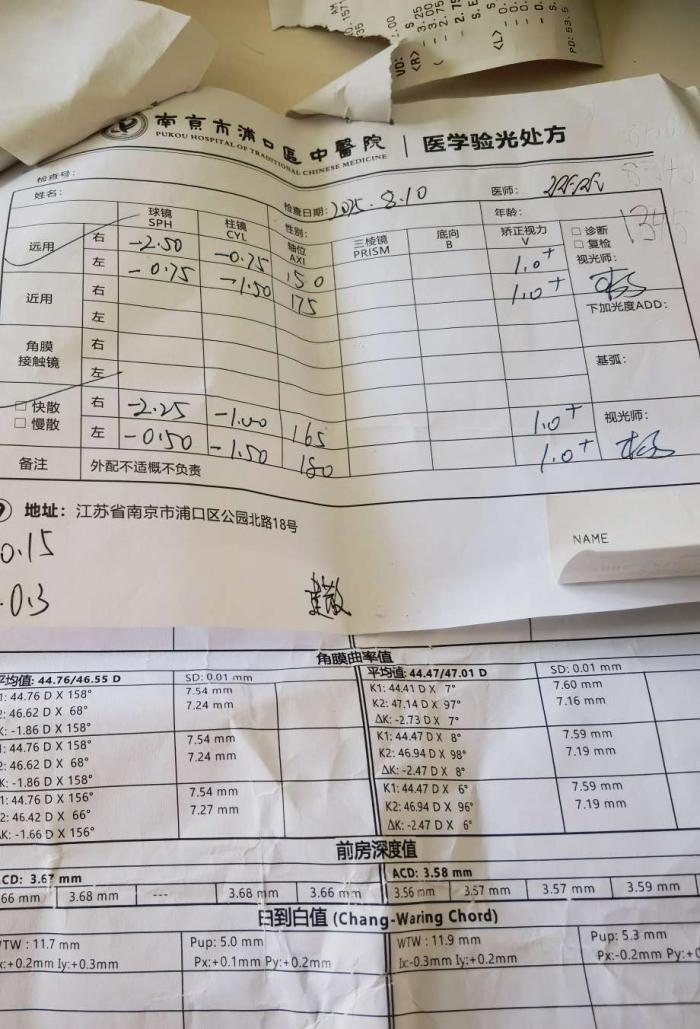 VD:
.00
S
<R>
- 3.25
- 3.00
- 2.75
- 2.75
S. E
<L>
PD: 59.5
南京市浦口區中醫院 | 医学验光处方
PUKOU HOSPITAL OF TRADITIONAL CHINESE MEDICINE
检查号:
姓名: 检查日期: 2025.8.10 医师:
性别: 年龄:
球镜 SPH 柱镜 CYL 轴位 AXI 三棱镜 PRISM 底向 B 矫正视力 V □ 诊断 □ 复检
1345
远用 右 -2.50 -0.75 150 1.0+ 视光师:
左 -0.75 -1.50 175 1.0+
近用 右 下加光度ADD:
左
角膜接触镜 右 基弧:
左
□ 快散 右 -2.25 -1.00 165 1.0+ 视光师:
□ 慢散 左 -0.50 -1.50 180 1.0+
备注 外配不适概不负责
地址: 江苏省南京市浦口区公园北路18号
0.15
NAME
角膜曲率值
平均值: 44.76/46.55 D SD: 0.01 mm 平均值: 44.47/47.01 D SD: 0.01 mm
1: 44.76 D X 158° 7.54 mm K1: 44.41 D X 7° 7.60 mm
2: 46.62 D X 68° 7.24 mm K2: 47.14 D X 97° 7.16 mm
K: -1.86 D X 158° ΔK: -2.73 D X 7°
1: 44.76 D X 158° 7.54 mm K1: 44.47 D X 8° 7.59 mm
2: 46.62 D X 68° 7.24 mm K2: 46.94 D X 98° 7.19 mm
K: -1.86 D X 158° ΔK: -2.47 D X 8°
1: 44.76 D X 156° 7.54 mm K1: 44.47 D X 6° 7.59 mm
2: 46.42 D X 66° 7.27 mm K2: 46.94 D X 96° 7.19 mm
ΔK: -1.66 D X 156° ΔK: -2.47 D X 6°
前房深度值
CD: 3.67 mm ACD: 3.58 mm
66 mm 3.68 mm --- 3.68 mm 3.66 mm 3.56 mm 3.57 mm 3.57 mm 3.59 mm
白到白值 (Chang-Waring Chord)
WTW : 11.7 mm Pup: 5.0 mm WTW : 11.9 mm Pup: 5.3 mm
x:+0.2mm Iy:+0.3mm Px:+0.1mm Py:+0.2mm Ix:-0.3mm Iy:+0.2mm Px:-0.2mm Py:+0